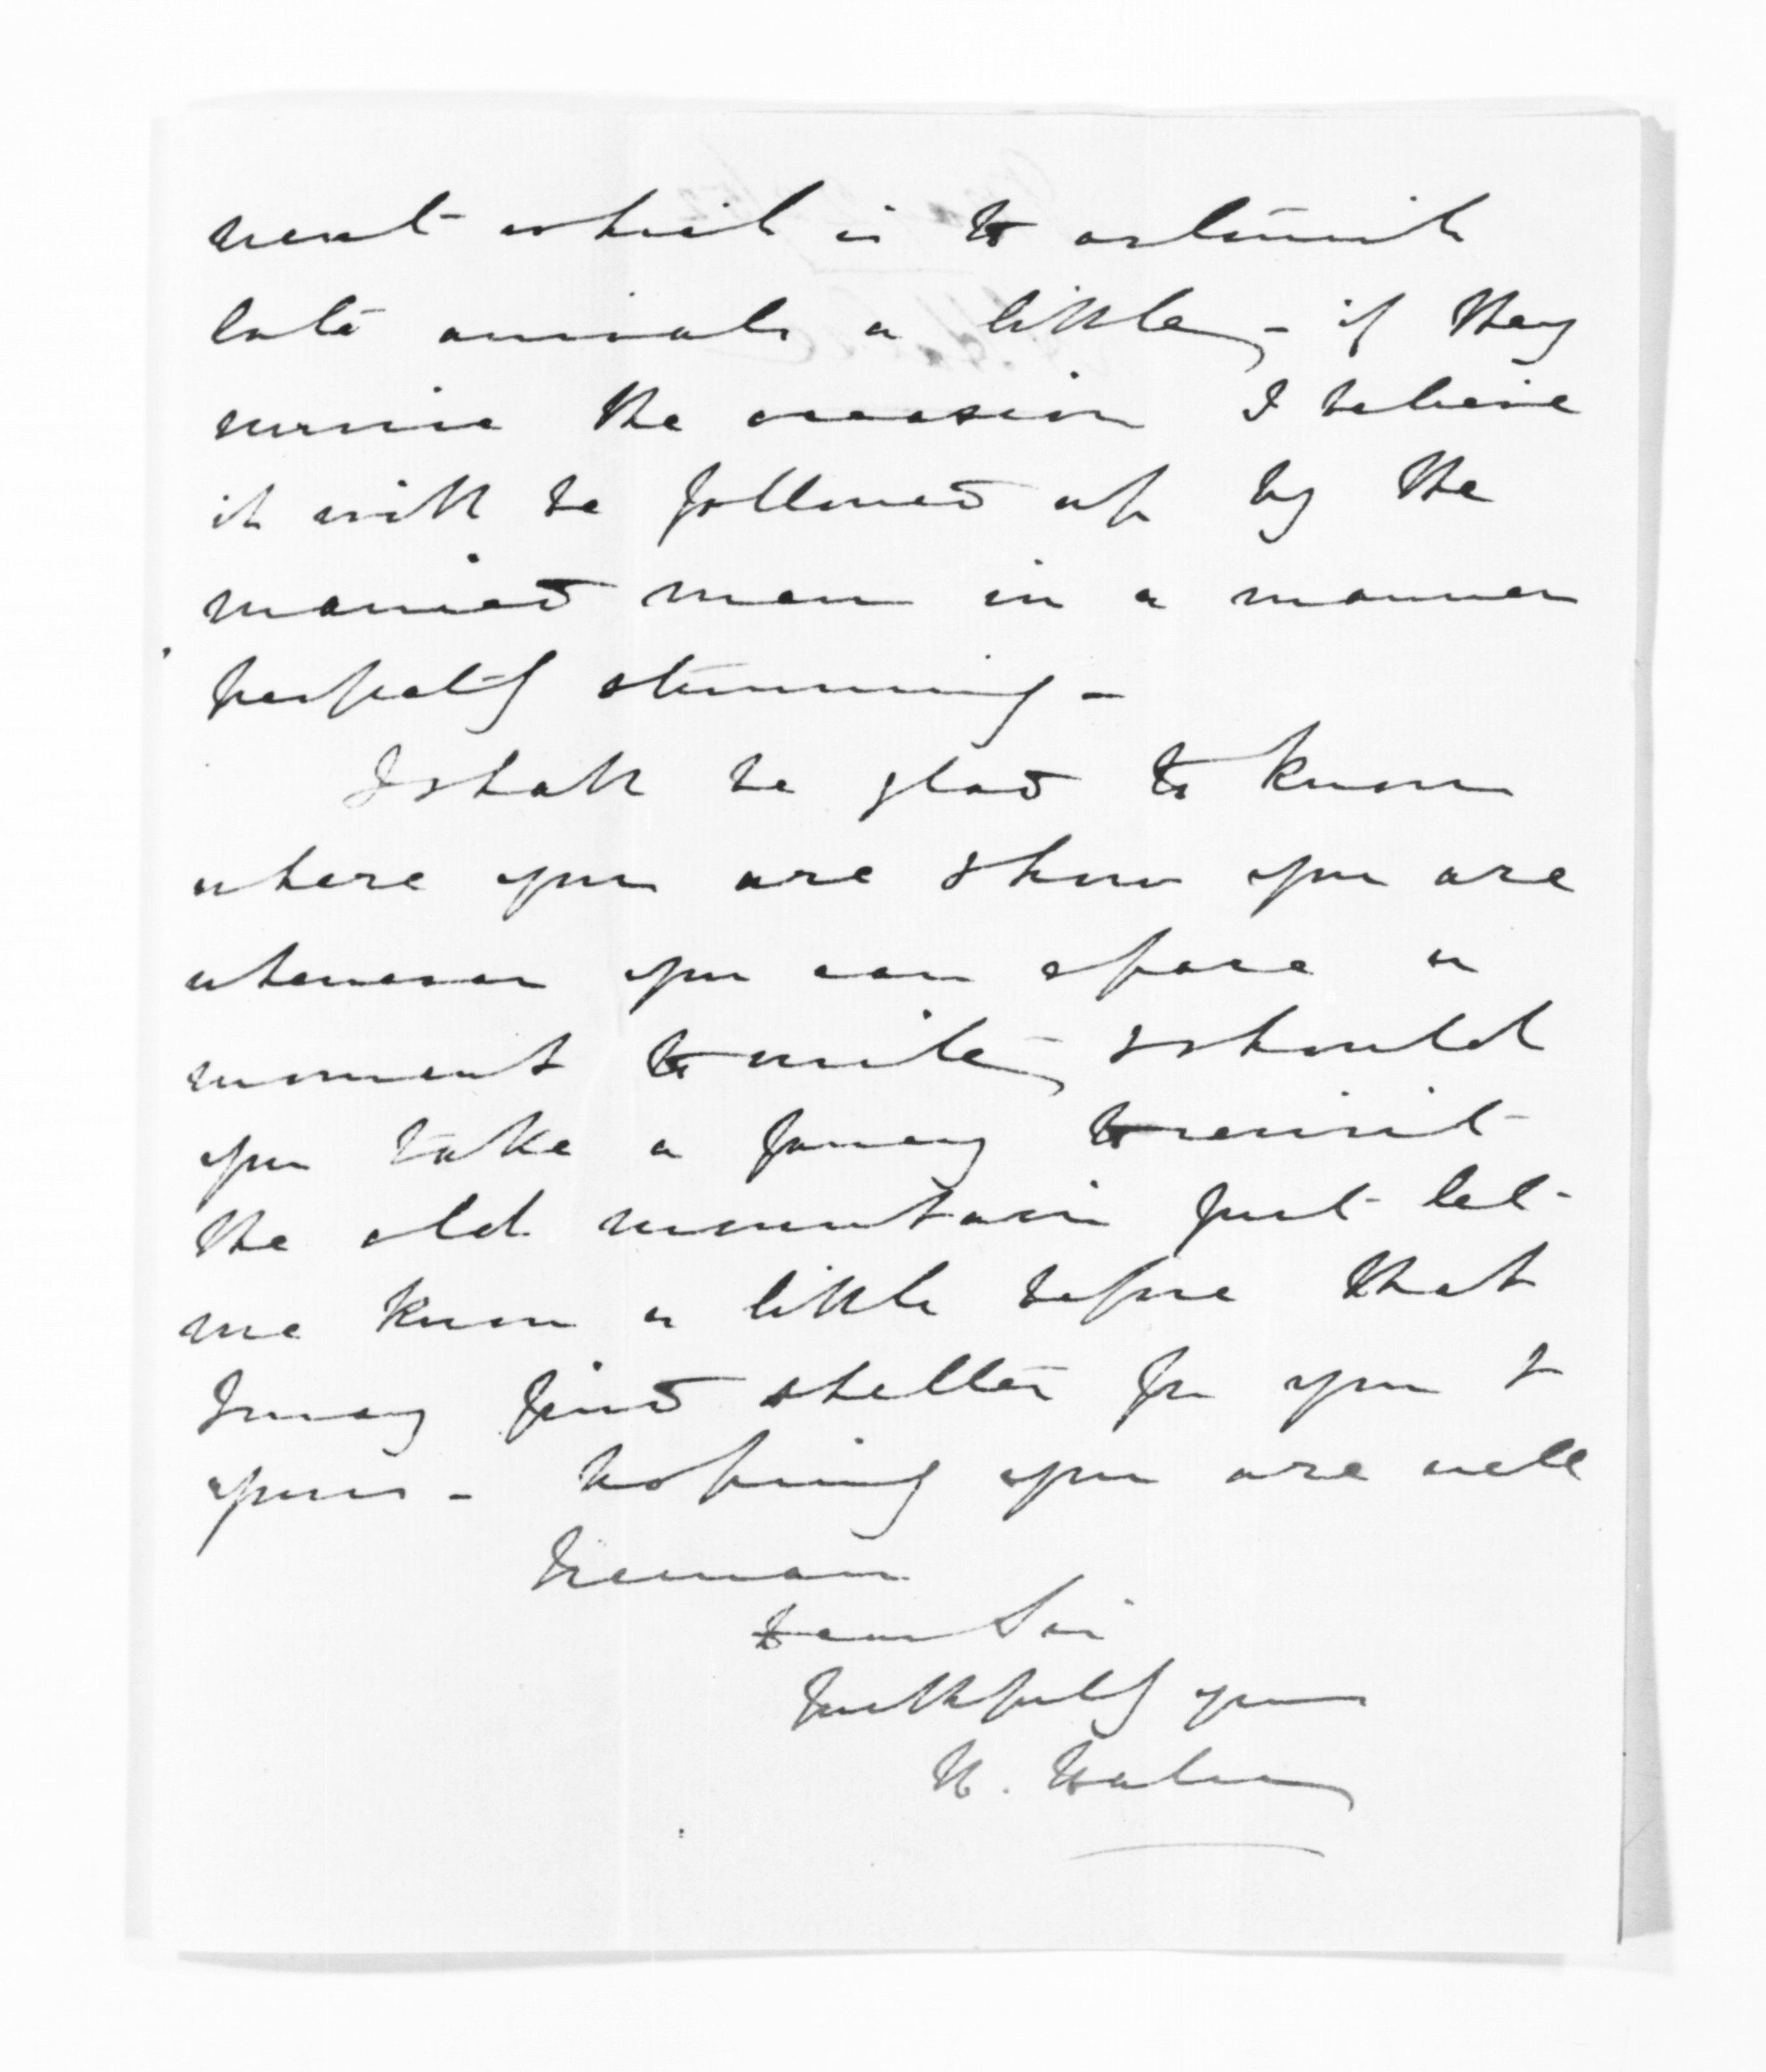 ment which is to astonish
late arrivals a little, - if they
survive the occasion I believe
it will be followed up by the
married men in a manner
perfectly stunning -
I shall be glad to know
where you are & how you are
whenever you can spare a
moment to write, & should
you take a fancy to revisit
the old mountain just let
me know a little before that
I may find shelter for you &
yours - hoping you are well
I remain
Dear Sir
Faithfully yours